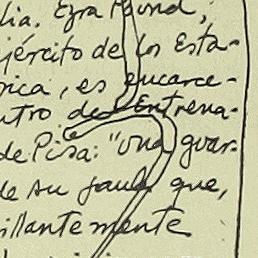 lia. Ezra Pound,
jército de los Esta-
ica, es encarce-
ntro de Entrena-
de Pisa: "una guar-
de su jaula que,
illantemente